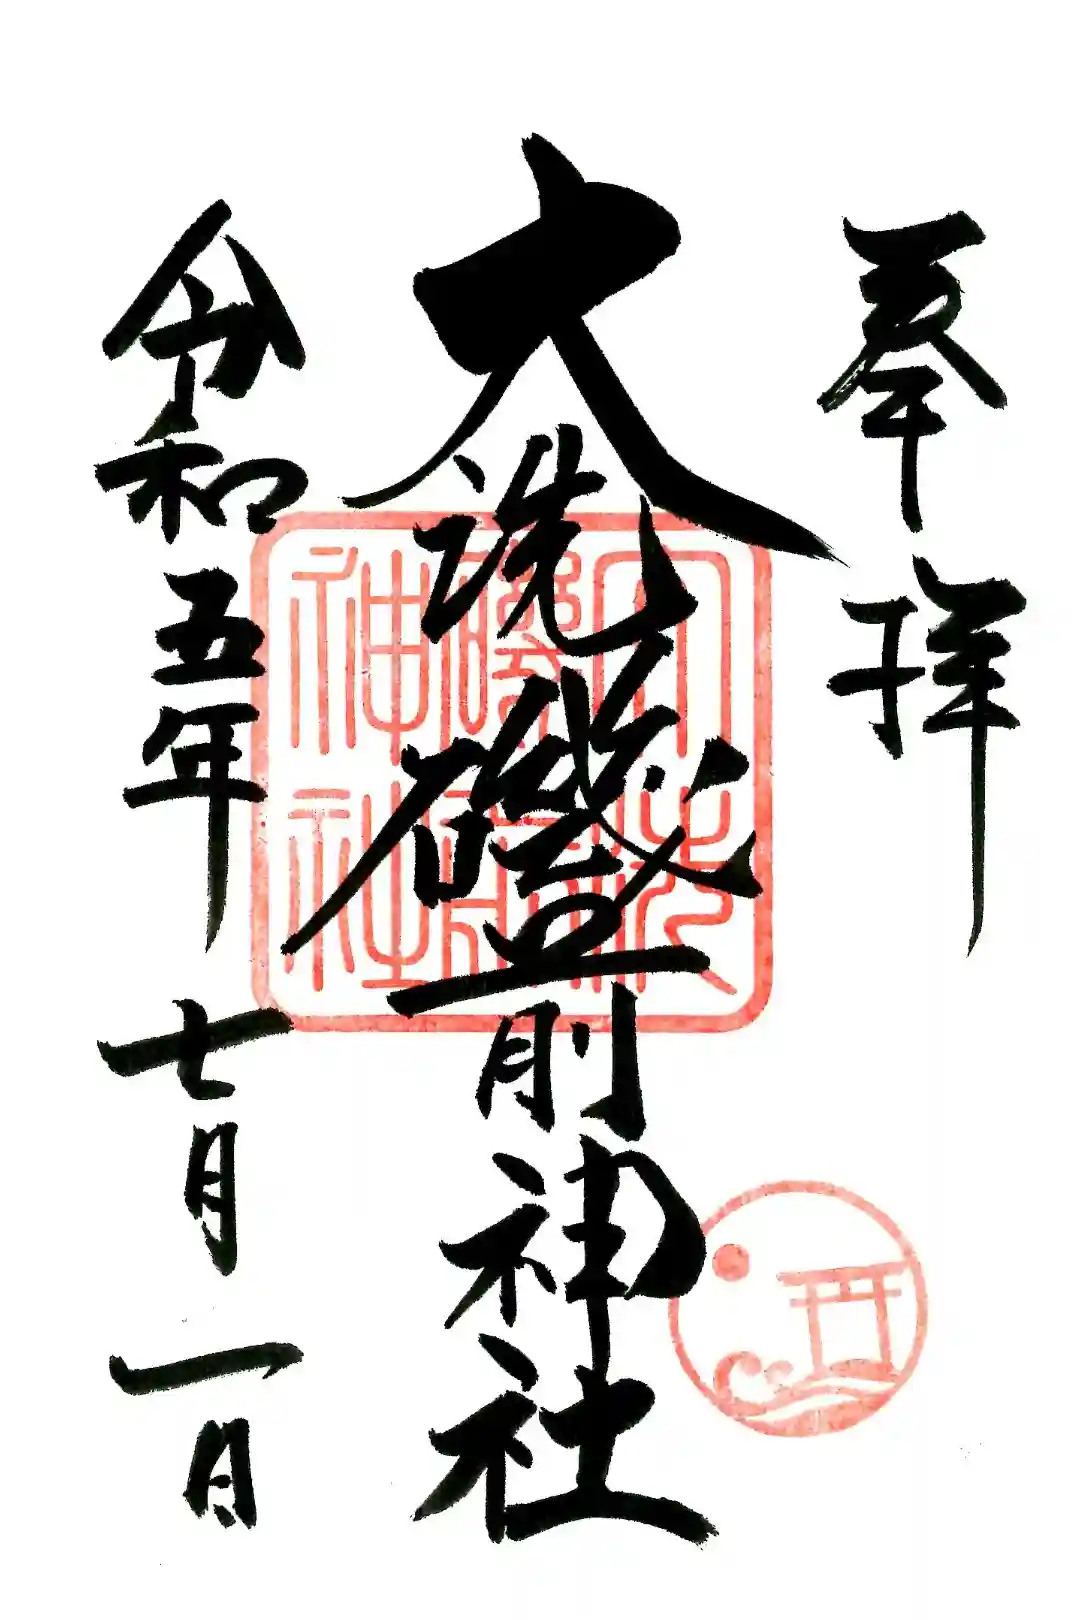 奉拝
大洗磯前神社
大洗磯前神社
令和五年七月一日